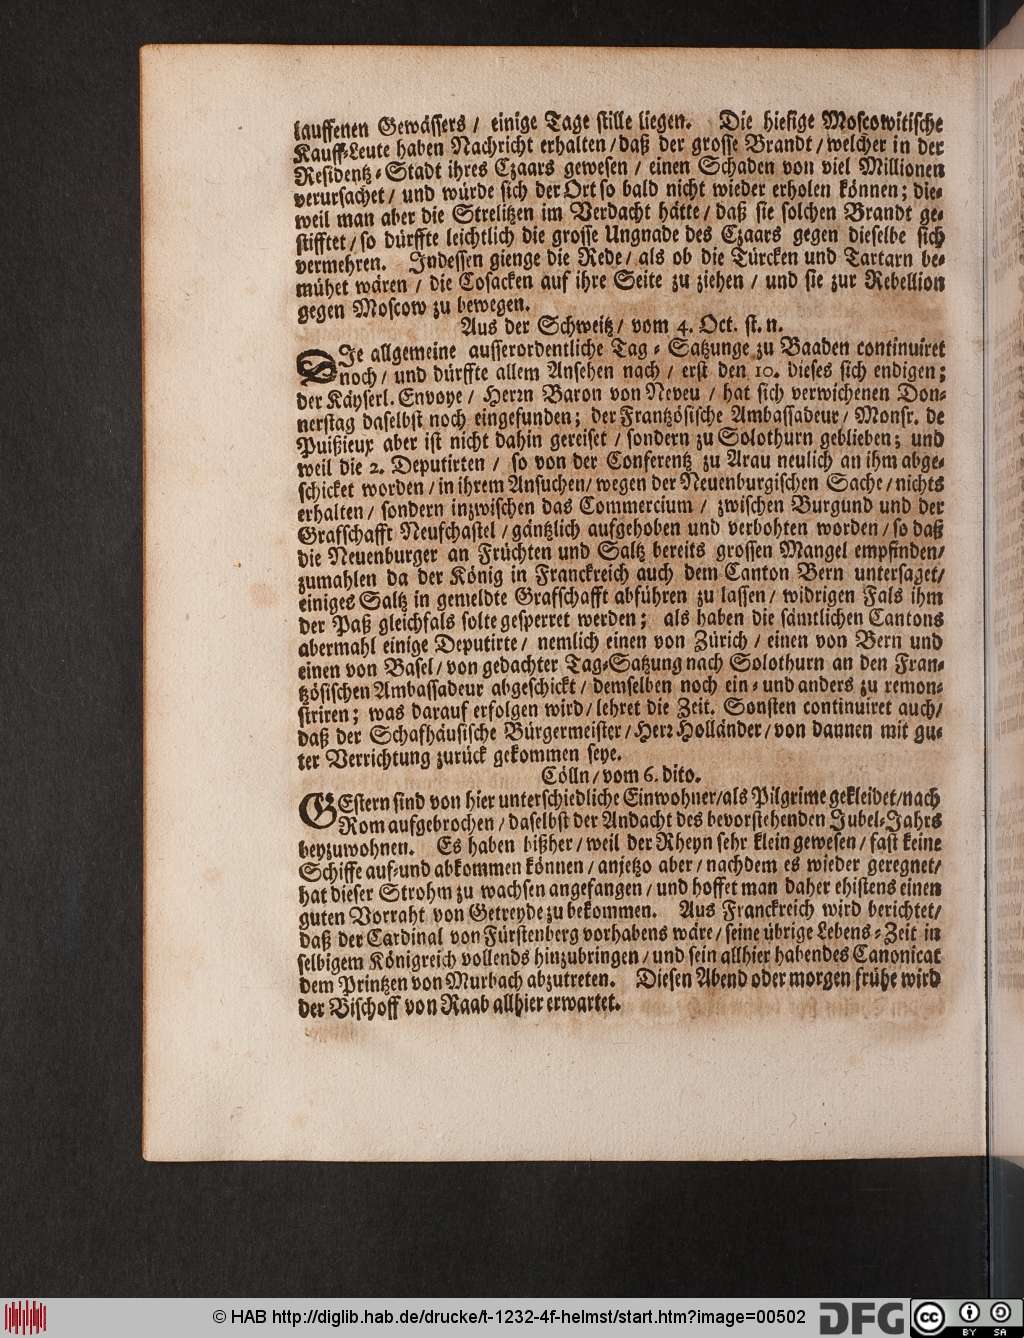 lauffenen Gewässers / einige Tage stille liegen. Die hiesige Moscowitische
Kauff-Leute haben Nachricht erhalten / daß der grosse Brandt / welcher in der
Residentz-Stadt ihres Czaars gewesen / einen Schaden von viel Millionen
verursachet / und würde sich der Ort so bald nicht wieder erholen können; die-
weil man aber die Strelitzen im Verdacht hätte / daß sie solchen Brandt ge-
stifftet / so dürffte leichtlich die grosse Ungnade des Czaars gegen dieselbe sich
vermehren. Indessen gienge die Rede / als ob die Türcken und Tartarn be-
mühet wären / die Cosacken auf ihre Seite zu ziehen / und sie zur Rebellion
gegen Moscow zu bewegen.
Aus der Schweitz / vom 4. Oct. st. n.
DIe allgemeine ausserordentliche Tag-Satzunge zu Baaden continuiret
noch / und dürffte allem Ansehen nach / erst den 10. dieses sich endigen;
der Käyserl. Envoye / Herrn Baron von Neveu / hat sich verwichenen Don-
nerstag daselbst noch eingefunden; der Frantzösische Ambassadeur / Monsr. de
Puißieux aber ist nicht dahin gereiset / sondern zu Solothurn geblieben; und
weil die 2. Deputirten / so von der Conferentz zu Arau neulich an ihm abge-
schicket worden / in ihrem Ansuchen / wegen der Neuenburgischen Sache / nichts
erhalten / sondern inzwischen das Commercium / zwischen Burgund und der
Grafschafft Neufchastel / gäntzlich aufgehoben und verbohten worden / so daß
die Neuenburger an Früchten und Saltz bereits grossen Mangel empfinden /
zumahlen da der König in Franckreich auch dem Canton Bern untersaget /
einiges Saltz in gemeldte Grafschafft abführen zu lassen / widrigen Fals ihm
der Paß gleichfals solte gesperret werden; als haben die sämtlichen Cantons
abermahl einige Deputirte / nemlich einen von Zürich / einen von Bern und
einen von Basel / von gedachter Tag-Satzung nach Solothurn an den Fran-
tzösischen Ambassadeur abgeschickt / demselben noch ein- und anders zu remon-
striren; was darauf erfolgen wird / lehret die Zeit. Sonsten continuiret auch /
daß der Schafhäusische Bürgermeister / Herr Holländer / von dannen mit gu-
ter Verrichtung zurück gekommen seye.
Cölln / vom 6. dito.
GEstern sind von hier unterschiedliche Einwohner / als Pilgrime gekleidet / nach
Rom aufgebrochen / daselbst der Andacht des bevorstehenden Jubel-Jahrs
beyzuwohnen. Es haben bißher / weil der Rheyn sehr klein gewesen / fast keine
Schiffe auf- und abkommen können / anjetzo aber / nachdem es wieder geregnet /
hat dieser Strohm zu wachsen angefangen / und hoffet man daher ehistens einen
guten Vorraht von Getreyde zu bekommen. Aus Franckreich wird berichtet /
daß der Cardinal von Fürstenberg vorhabens wäre / seine übrige Lebens-Zeit in
selbigem Königreich vollends hinzubringen / und sein allhier habendes Canonicat
dem Printzen von Murbach abzutreten. Diesen Abend oder morgen frühe wird
der Bischoff von Raab allhier erwartet.
© HAB http://diglib.hab.de/drucke/t-1232-4f-helmst/start.htm?image=00502
DFG
cc BY SA